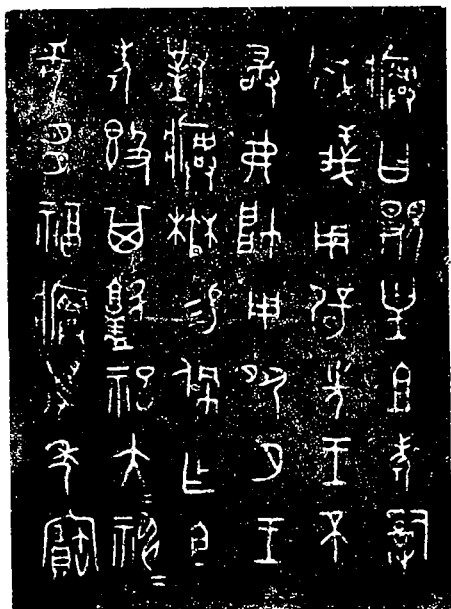 𤼈曰覭皇且考𤔲
威義用辟先王不
敢弗帥用夙夕王
對𤼈楙易佩乍且
考簋其𥁰祀大=神=
妥多福𤼈萬年寶